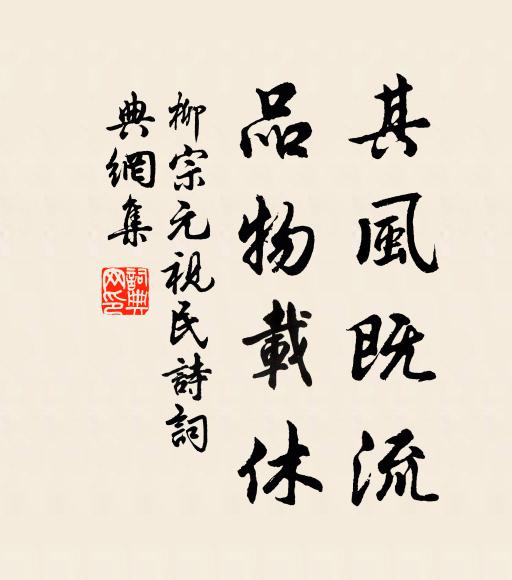 其風既流
品物載休
柳宗元視民詩詞
典網集
詞典
网印